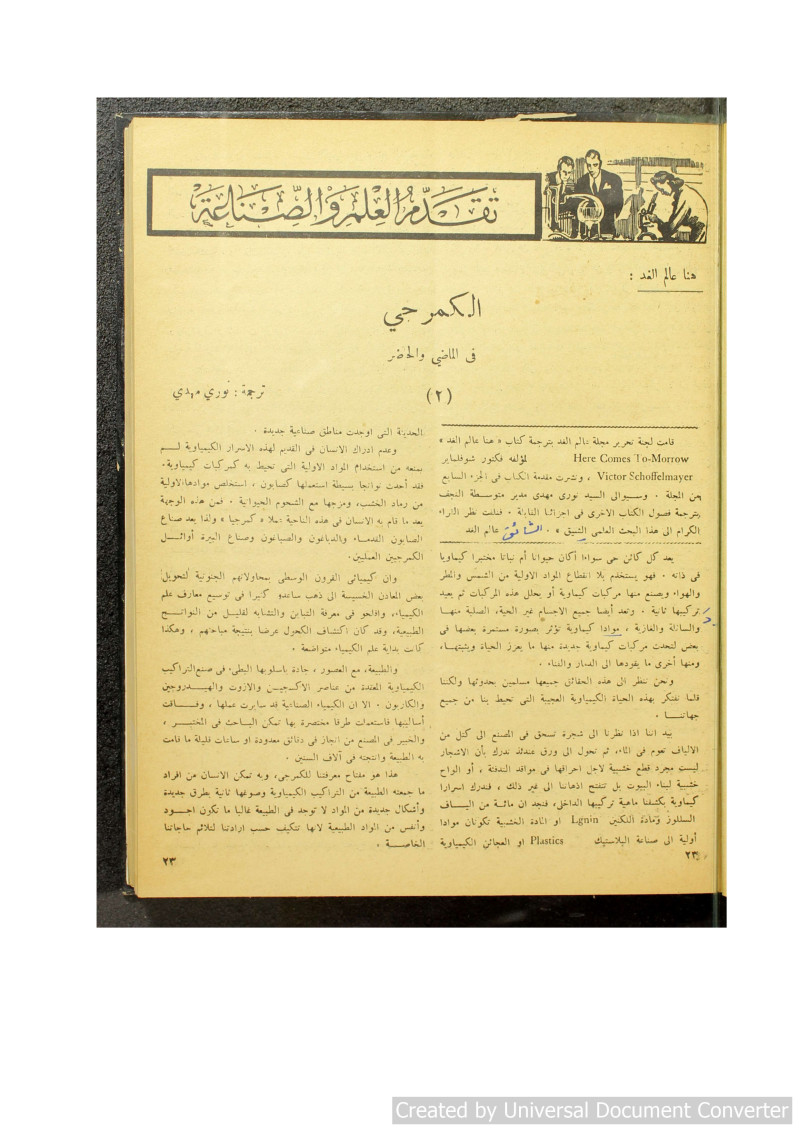 تقدم العلم والصناعة
هنا عالم الغد :
الكمرجي
في الماضي والحاضر
(٢)
ترجمة : نوري مهدي
قامت لجنة تحرير مجلة عالم الغد بترجمة كتاب « هنا عالم الغد »
Here Comes To-Morrow لمؤلفه فكتور شوفلماير
Victor Schoffelmayer ، ونشرت مقدمة الكتاب في الجزء السابع
من المجلة . وسيوالي السيد نوري مهدي مدير متوسطة النجف
بترجمة فصول الكتاب الاخرى في اجزائنا القابلة . فنلفت نظر القراء
الكرام الى هذا البحث العلمي الشيق » . الشائق عالم الغد
يعد كل كائن حي سواءا أكان حيوانا أم نباتا مختبرا كيماويا
في ذاته . فهو يستخدم بلا انقطاع المواد الاولية من الشمس والمطر
والهواء ويصنع منها مركبات كيماوية أو يحلل هذه المركبات ثم يعيد
تركيبها ثانية . وتعد أيضا جميع الاجسام غير الحية، الصلبة منها
والسائلة والغازية ، موادا كيماوية تؤثر بصورة مستمرة بعضها في
بعض لتحدث مركبات كيماوية جديدة منها ما يعزز الحياة ويثبتها،
ومنها أخرى ما يقودها الى الدمار والفناء .
ونحن ننظر الى هذه الحقائق جميعها مسلمين بحدوثها ولكننا
قلما نفتكر بهذه الحياة الكيماوية العجيبة التي تحيط بنا من جميع
جهاتنا .
بيد اننا اذا نظرنا الى شجرة تسحق في المصنع الى كتل من
الالياف تعوم في الماء، ثم تحول الى ورق عندئذ ندرك بأن الاشجار
ليست مجرد قطع خشبية لاجل احراقها في مواقد التدفئة ، أو الواح
خشبية لبناء البيوت بل تتفتح اذهاننا الى غير ذلك ، فندرك اسرارا
كيماوية بكشفنا ماهية تركيبها الداخلي، فنجد ان مادة من الياف
السللوز ومادة اللكنين Lgnin او المادة الخشبية تكونان موادا
أولية الى صناعة البلاستيك Plastics او العجائن الكيمياوية
٢٣
الحديثة التي اوجدت مناطق صناعية جديدة .
وعدم ادراك الانسان في القديم لهذه الاسرار الكيمياوية لم
يمنعه من استخدام المواد الاولية التي تحيط به كمركبات كيمياوية،
فقد أحدث نواتجا بسيطة استعملها كصابون ، استخلص موادهاالاولية
من رماد الخشب، ومزجها مع الشحوم الحيوانية . فمن هذه الوجهة
يعد ما قام به الانسان في هذه الناحية عملا « كمرجيا » ولذا يعد صناع
الصابون القدماء والدباغون والصباغون وصناع البيرة أوائل
الكمرجيين العمليين.
وان كيميائي القرون الوسطى بمحاولاتهم الجنونية لتحويل
بعض المعادن الخسيسة الى ذهب ساعدوا كثيرا في توسيع معارف علم
الكيمياء، وافلحوا في معرفة التباين والتشابه لقليل من النواتج
الطبيعية، وقد كان اكتشاف الكحول عرضا بنتيجة مباحثهم ، وهكذا
كانت بداية علم الكيمياء متواضعة .
والطبيعة، مع العصور ، جادة باسلوبها البطيء في صنع التراكيب
الكيمياوية المعقدة من عناصر الاكسجين والازوت والهيدروجين
والكاربون . الا ان الكيمياء الصناعية قد سايرت عملها ، وفاقت
أساليبها فاستعملت طرقا مختصرة بها تمكن الباحث في المختبر ،
والخبير في المصنع من انجاز في دقائق معدودة او ساعات قليلة ما قامت
به الطبيعة وانتجته في آلاف السنين .
هذا هو مفتاح معرفتنا للكمرجي، وبه تمكن الانسان من افراد
ما جمعته الطبيعة من التراكيب الكيمياوية وصوغها ثانية بطرق جديدة
وأشكال جديدة من المواد لا توجد في الطبيعة غالبا ما تكون اجود
وأنفس من المواد الطبيعية لانها تتكيف حسب ارادتنا لتلائم حاجاتنا
الخاصة .
٢٣
Created by Universal Document Converter